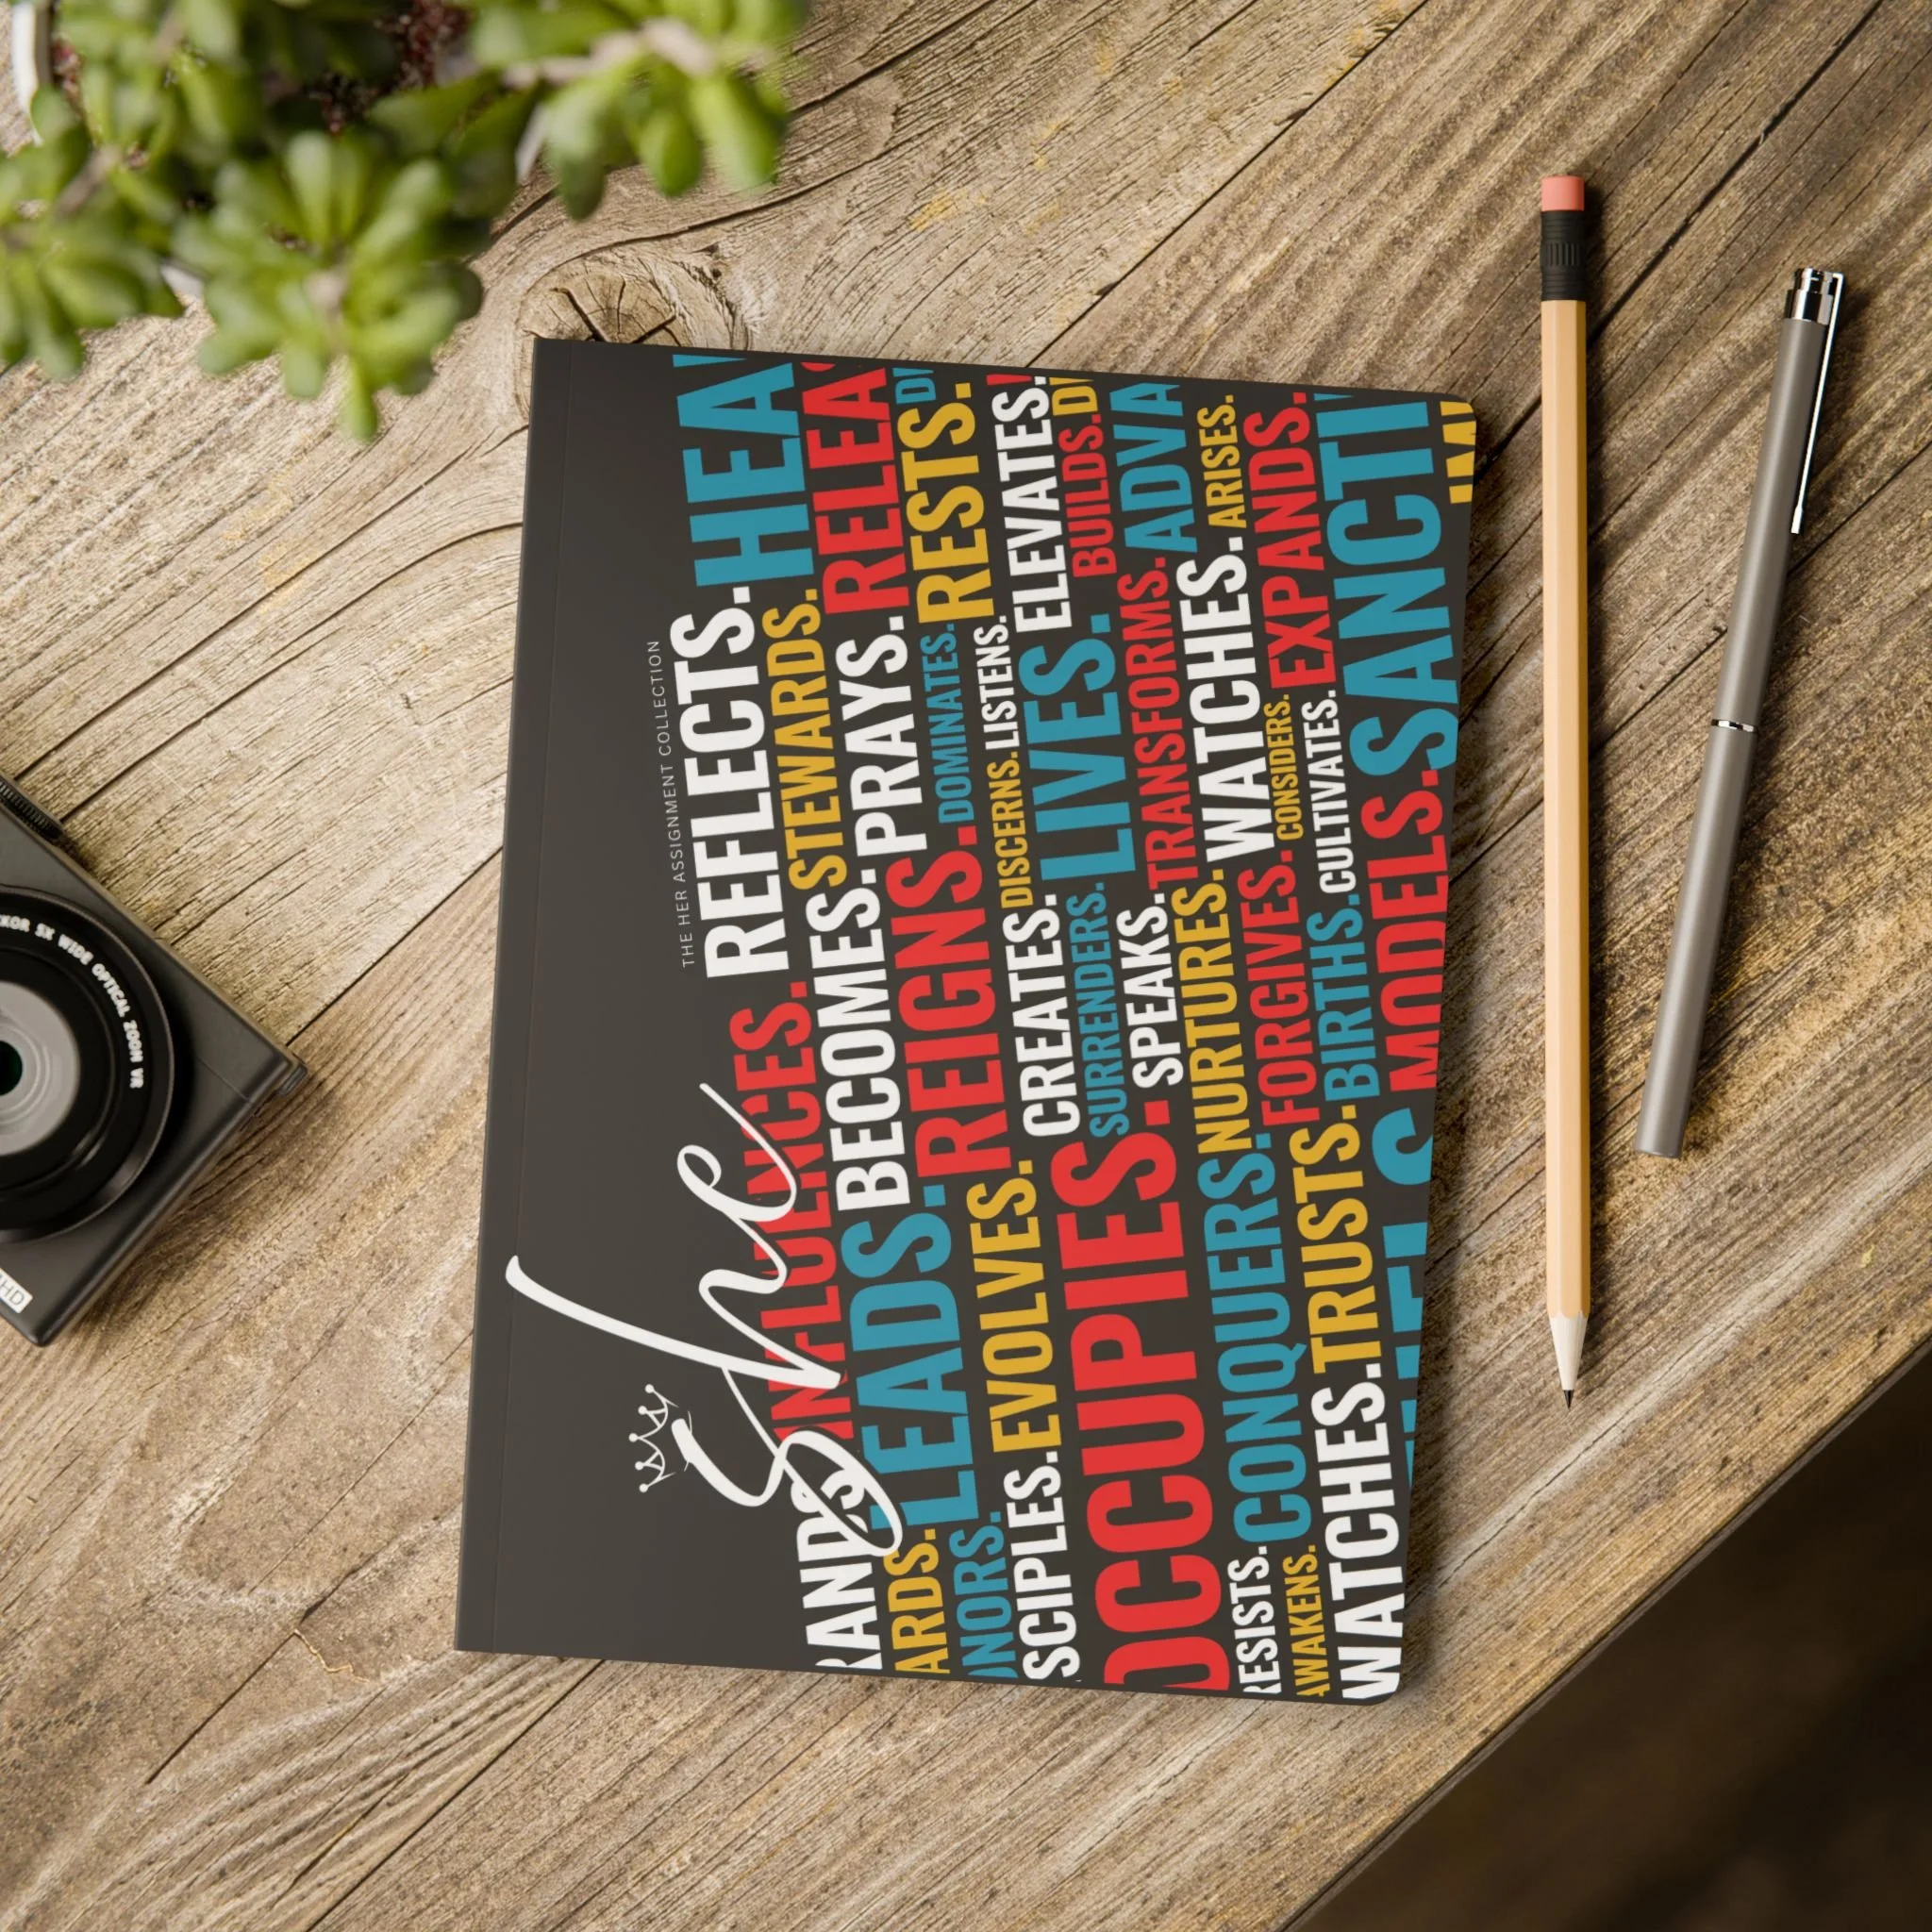 THE HER ASSIGNMENT COLLECTION
She
INFLUENCES. REFLECTS. HEA
RANDS. BECOMES. STEWARDS.
LEADS. REIGNS. PRAYS. RELEA
ARDS. EVOLVES. DOMINATES. RESTS. D
ONORS. CREATES. DISCERNS. LISTENS.
SCIPLES. SURRENDERS. LIVES. ELEVATES.
OCCUPIES. SPEAKS. TRANSFORMS. BUILDS. D
CONQUERS. NURTURES. WATCHES. ADVA
RESISTS. FORGIVES. CONSIDERS. ARISES.
AWAKENS. TRUSTS. BIRTHS. CULTIVATES. EXPANDS.
WATCHES. MODELS. SANCTI
KOR 5X WIDE OPTICAL ZOOM VR
HD